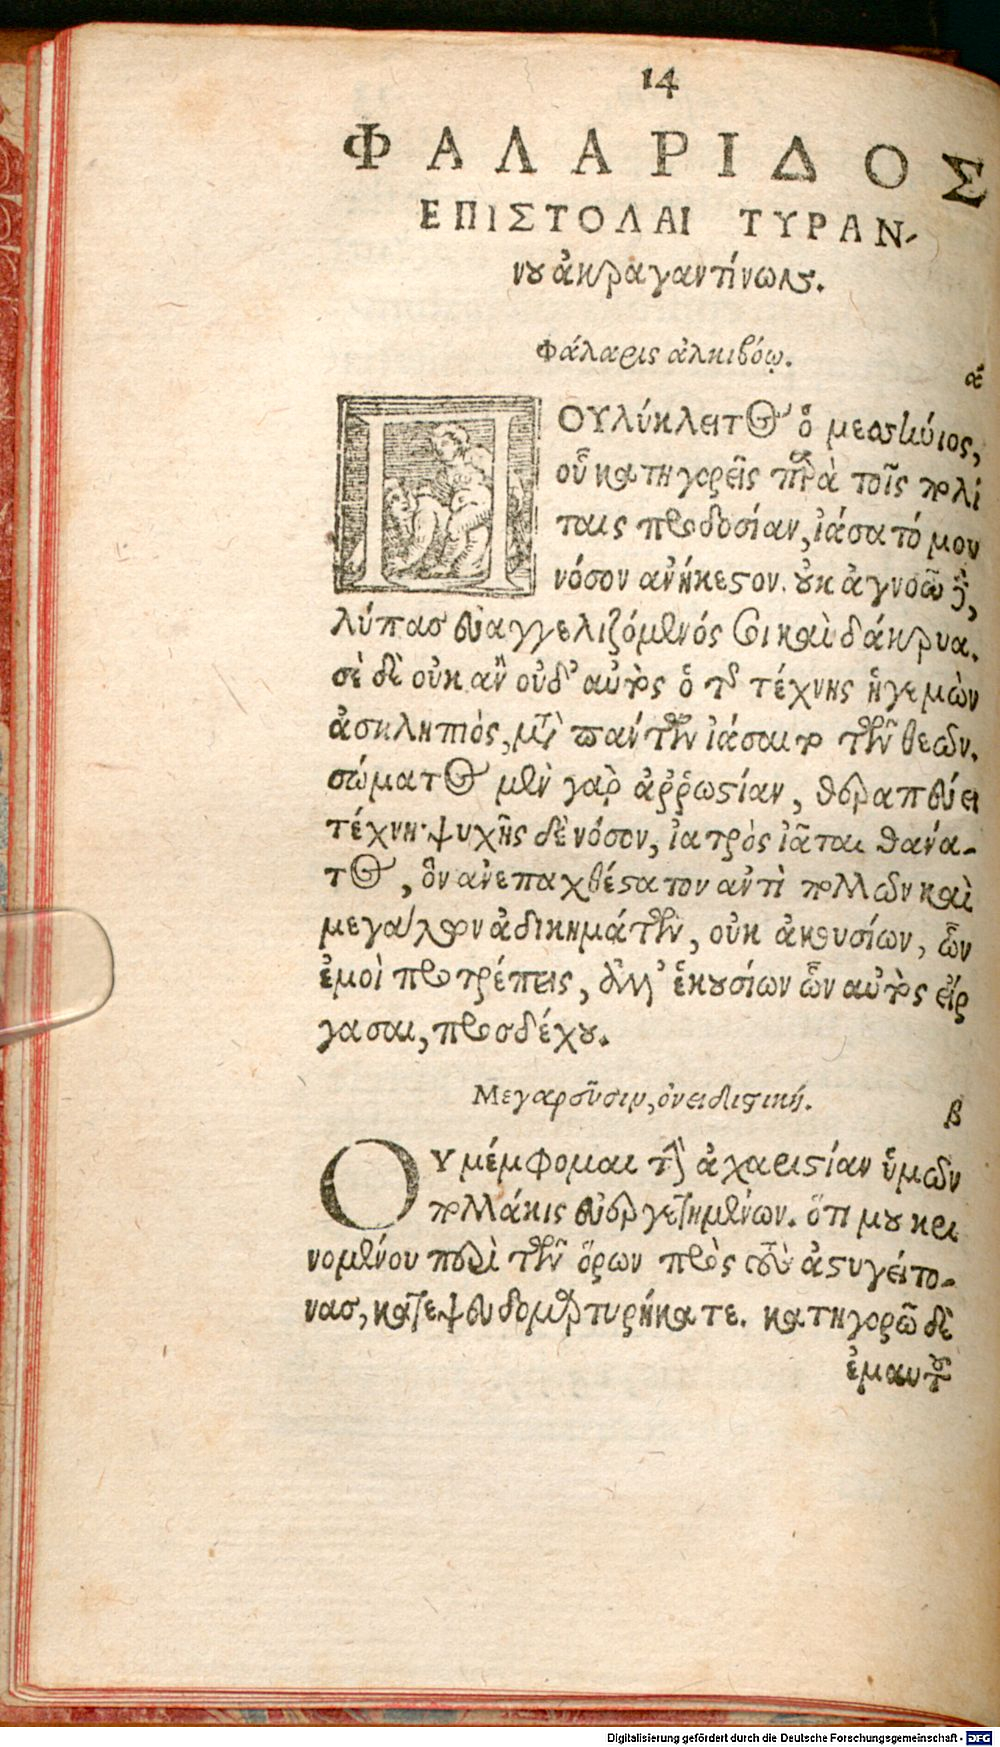 14
ΦΑΛΑΡΙΔΟΣ
ΕΠΙΣΤΟΛΑΙ ΤΥΡΑΝ-
νου ἀκραγαντίνων.
Φάλαρις ἀλκιβόῳ.
α
ΠΟΥλύκλειτος ὁ μεσσήνιος,
οὗ κατηγορεῖς παρὰ τοῖς πολί
ταις προδοσίαν, ἰάσατό μου
νόσον ἀνήκεστον. οὐκ ἀγνοῶ
λύπας εὐαγγελιζόμενός σοι καὶ δάκρυα.
σὲ δὲ οὐκ ἂν οὐδ' αὐτὸς ὁ τῆς τέχνης ἡγεμὼν
ἀσκληπιὸς, μετὰ πάντων ἰάσαιτο τῶν θεῶν.
σώματος μὲν γὰρ ἀῤῥωστίαν, θεραπεύει
τέχνη· ψυχῆς δὲ νόσον, ἰατρὸς ἰᾶται θάνα-
τος, ὃν ἀνεπαχθέστατον ἀντὶ πολλῶν καὶ
μεγάλων ἀδικημάτων, οὐκ ἀκουσίων, ὧν
ἐμοὶ προτρέπεις, ἀλλ' ἑκουσίων ὧν αὐτὸς εἴρ
γασαι, προσδέχου.
Μεγαρεῦσιν, ὀνειδιστική.
β
ΟΥ μέμφομαι τὴν ἀχαριστίαν ὑμῶν
πολλάκις εὐεργετημένων. ὅτι μου κρι
νομένου περὶ τῶν ὅρων πρὸς τοὺς ἀστυγείτο-
νας, κατεψευδομαρτυρήκατε. κατηγορῶ δὲ
ἐμαυτοῦ
Digitalisierung gefördert durch die Deutsche Forschungsgemeinschaft - DFG